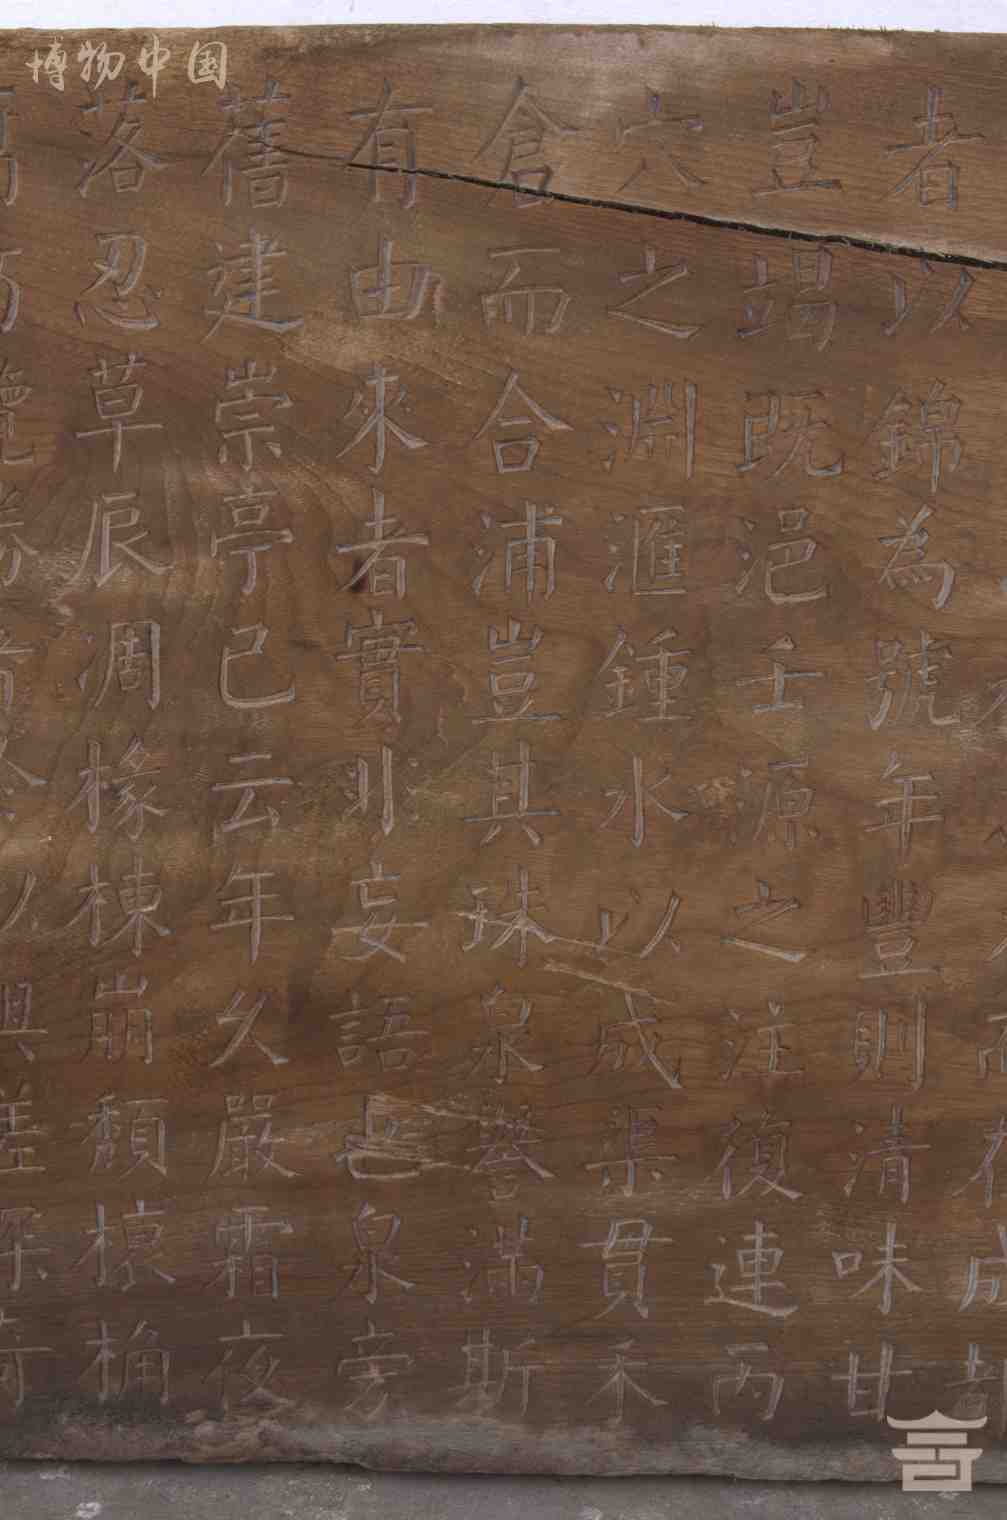 博物中国
成都
者以錦為號年豐則清味甘
豈竭既浥壬源之注復連丙
穴之淵滙鍾水以成渠貫禾
倉而合浦豈其珠泉譽滿斯
有由來者實非妄語泉旁
舊建崇亭已云年久嚴霜夜
落忍草辰凋椽棟崩頹榱桷